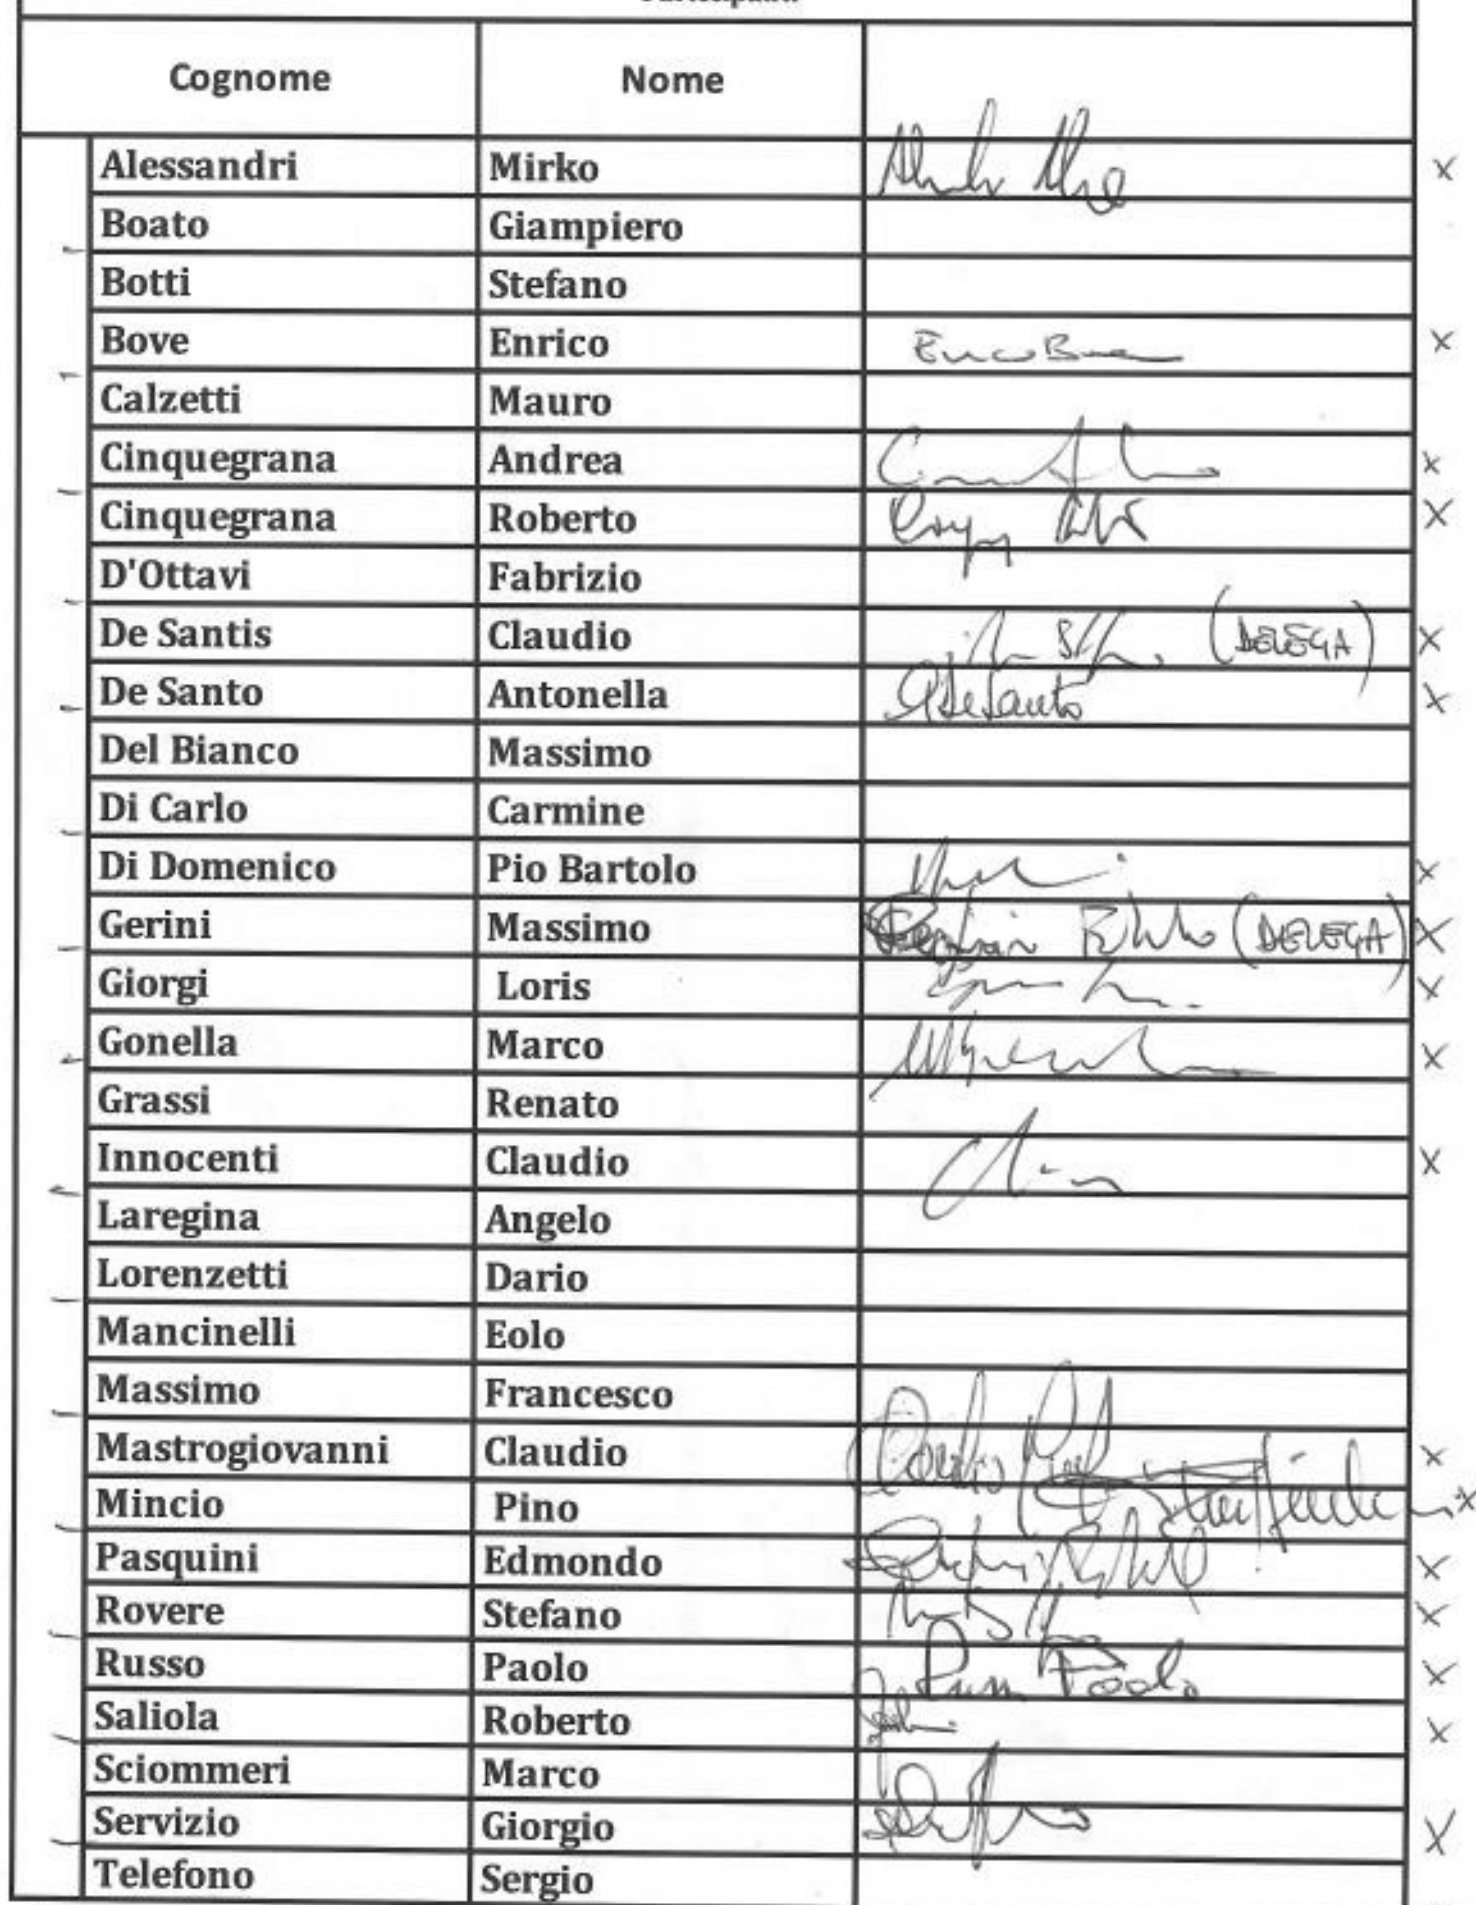 Cognome Nome
Alessandri Mirko x
Boato Giampiero
Botti Stefano
Bove Enrico x
Calzetti Mauro
Cinquegrana Andrea x
Cinquegrana Roberto x
D'Ottavi Fabrizio
De Santis Claudio (DELEGA) x
De Santo Antonella ADeSanto x
Del Bianco Massimo
Di Carlo Carmine
Di Domenico Pio Bartolo x
Gerini Massimo (DELEGA) x
Giorgi Loris x
Gonella Marco x
Grassi Renato
Innocenti Claudio x
Laregina Angelo
Lorenzetti Dario
Mancinelli Eolo
Massimo Francesco
Mastrogiovanni Claudio Claudio x
Mincio Pino x
Pasquini Edmondo x
Rovere Stefano x
Russo Paolo Russo Paolo x
Saliola Roberto x
Sciommeri Marco
Servizio Giorgio x
Telefono Sergio